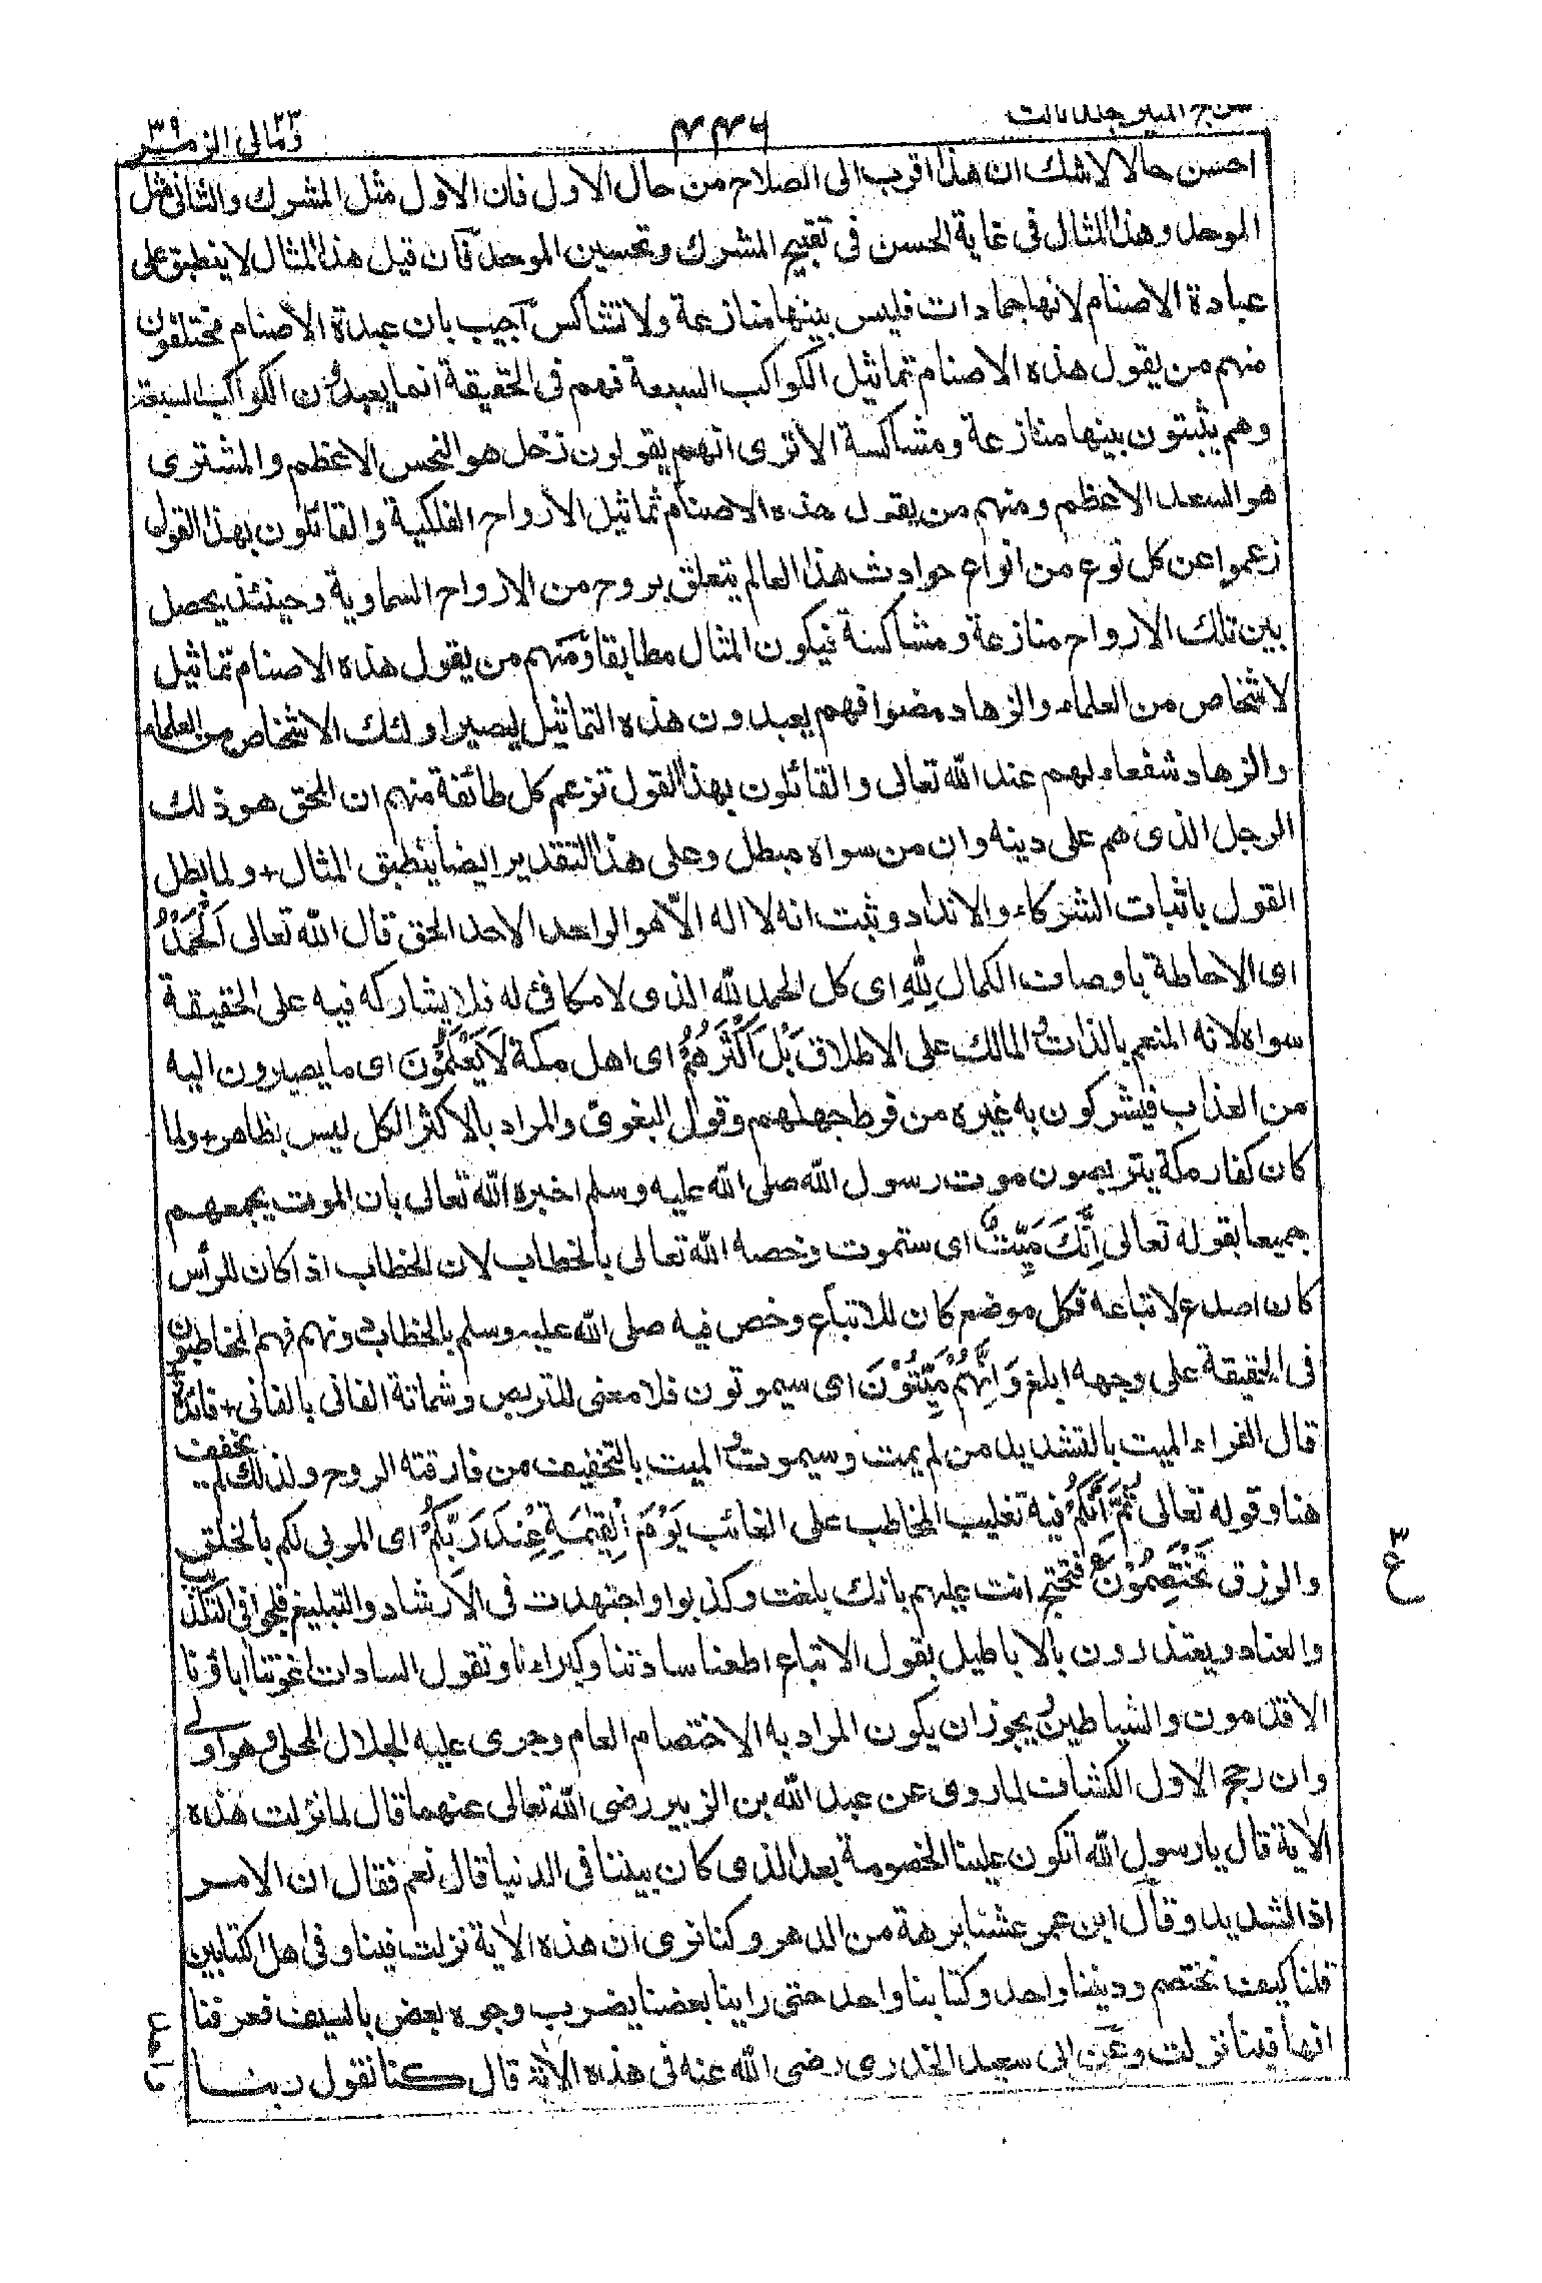 السراج المنير جلد ثالث ٤٤٦ ومالى ٢٣ الزمر ٣٩
احسن حالا لاشك ان هذا اقرب الى الصلاح من حال الاول فان الاول مثل المشرك والثانى مثل
الموحد وهذا المثال فى غاية الحسن فى تقبيح المشرك وتحسين الموحد فان قيل هذا المثال لا ينطبق على
عبادة الاصنام لانها جمادات فليس بينها منازعة ولا تشاكس اجيب بان عبدة الاصنام مختلفون
منهم من يقول هذه الاصنام تماثيل الكواكب السبعة فهم فى الحقيقة انما يعبدون الكواكب السبعة
وهم يثبتون بينها منازعة ومشاكسة الاترى انهم يقولون زحل هو النحس الاعظم والمشترى
هو السعد الاعظم ومنهم من يقول هذه الاصنام تماثيل الارواح الفلكية والقائلون بهذا القول
زعموا عن كل نوع من انواع حوادث هذا العالم يتعلق بروح من الارواح السماوية وحينئذ يحصل
بين تلك الارواح منازعة ومشاكسة فيكون المثال مطابقا ومنهم من يقول هذه الاصنام تماثيل
لاشخاص من العلماء والزهاد مضوا فهم يعبدون هذه التماثيل ليصير اولئك الاشخاص من العلماء
والزهاد شفعاء لهم عند الله تعالى والقائلون بهذا القول تزعم كل طائفة منهم ان المحق هو ذلك
الرجل الذى هم على دينه وان من سواه مبطل وعلى هذا التقدير ايضا ينطبق المثال + ولما بطل
القول باثبات الشركاء والانداد وثبت انه لا اله الا هو الواحد الاحد الحق قال الله تعالى اَلْحَمْدُ
اى الاحاطة باوصاف الكمال لِلّٰهِ اى كل الحمد لله الذى لا مكافئ له فلا يشاركه فيه على الحقيقة
سواه لانه المنعم بالذات والمالك على الاطلاق بَلْ اَكْثَرُهُمْ اى اهل مكة لَا يَعْلَمُوْنَ اى ما يصيرون اليه
من العذاب فيشركون به غيره من فرط جهلهم وقول البغوى والمراد بالاكثر الكل ليس بظاهر + ولما
كان كفار مكة يتربصون موت رسول الله صلى الله عليه وسلم اخبره الله تعالى بان الموت يجمعهم
جميعا بقوله تعالى اِنَّكَ مَيِّتٌ اى ستموت وخصه الله تعالى بالخطاب لان الخطاب اذا كان للرأس
كان اصدع لاتباعه فكل موضع كان للاتباع وخص فيه صلى الله عليه وسلم بالخطاب دونهم فهم المخاطبون
فى الحقيقة على وجه ابلغ وَاِنَّهُمْ مَيِّتُوْنَ اى سيموتون فلا معنى للتربص وشماتة الفانى بالفانى + فائدة
قال الفراء الميت بالتشديد من لم يمت وسيموت والميت بالتخفيف من فارقته الروح ولذلك لم يخفف
هنا وقوله تعالى ثُمَّ اِنَّكُمْ فيه تغليب المخاطب على الغائب يَوْمَ الْقِيٰمَةِ عِنْدَ رَبِّكُمْ اى المربى لكم بالخلق
والرزق تَخْتَصِمُوْنَ فتحتج انت عليهم بانك بلغت وكذبوا واجتهدت فى الارشاد والتبليغ فلجوا فى التكذيب
والعناد ويعتذرون بالاباطيل يقول الاتباع اطعنا سادتنا وكبراءنا وتقول السادات اغوتنا اباؤنا
الاقدمون والشياطين ويجوز ان يكون المراد به الاختصام العام وجرى عليه الجلال المحلى وهو اولى
وان رجح الاول الكشاف لما روى عن عبد الله بن الزبير رضى الله تعالى عنهما قال لما نزلت هذه
الاية قال يا رسول الله اتكون علينا الخصومة بعد الذى كان بيننا فى الدنيا قال نعم فقال ان الامر
اذا لشديد وقال ابن عمر عشنا برهة من الدهر وكنا نرى ان هذه الاية نزلت فينا وفى اهل الكتابين
قلنا كيف نختصم وديننا واحد وكتابنا واحد حتى راينا بعضنا يضرب وجوه بعض بالسيف فعرفنا
انها فينا نزلت وعن ابى سعيد الخدرى رضى الله عنه فى هذه الاية قال كنا نقول ربنا